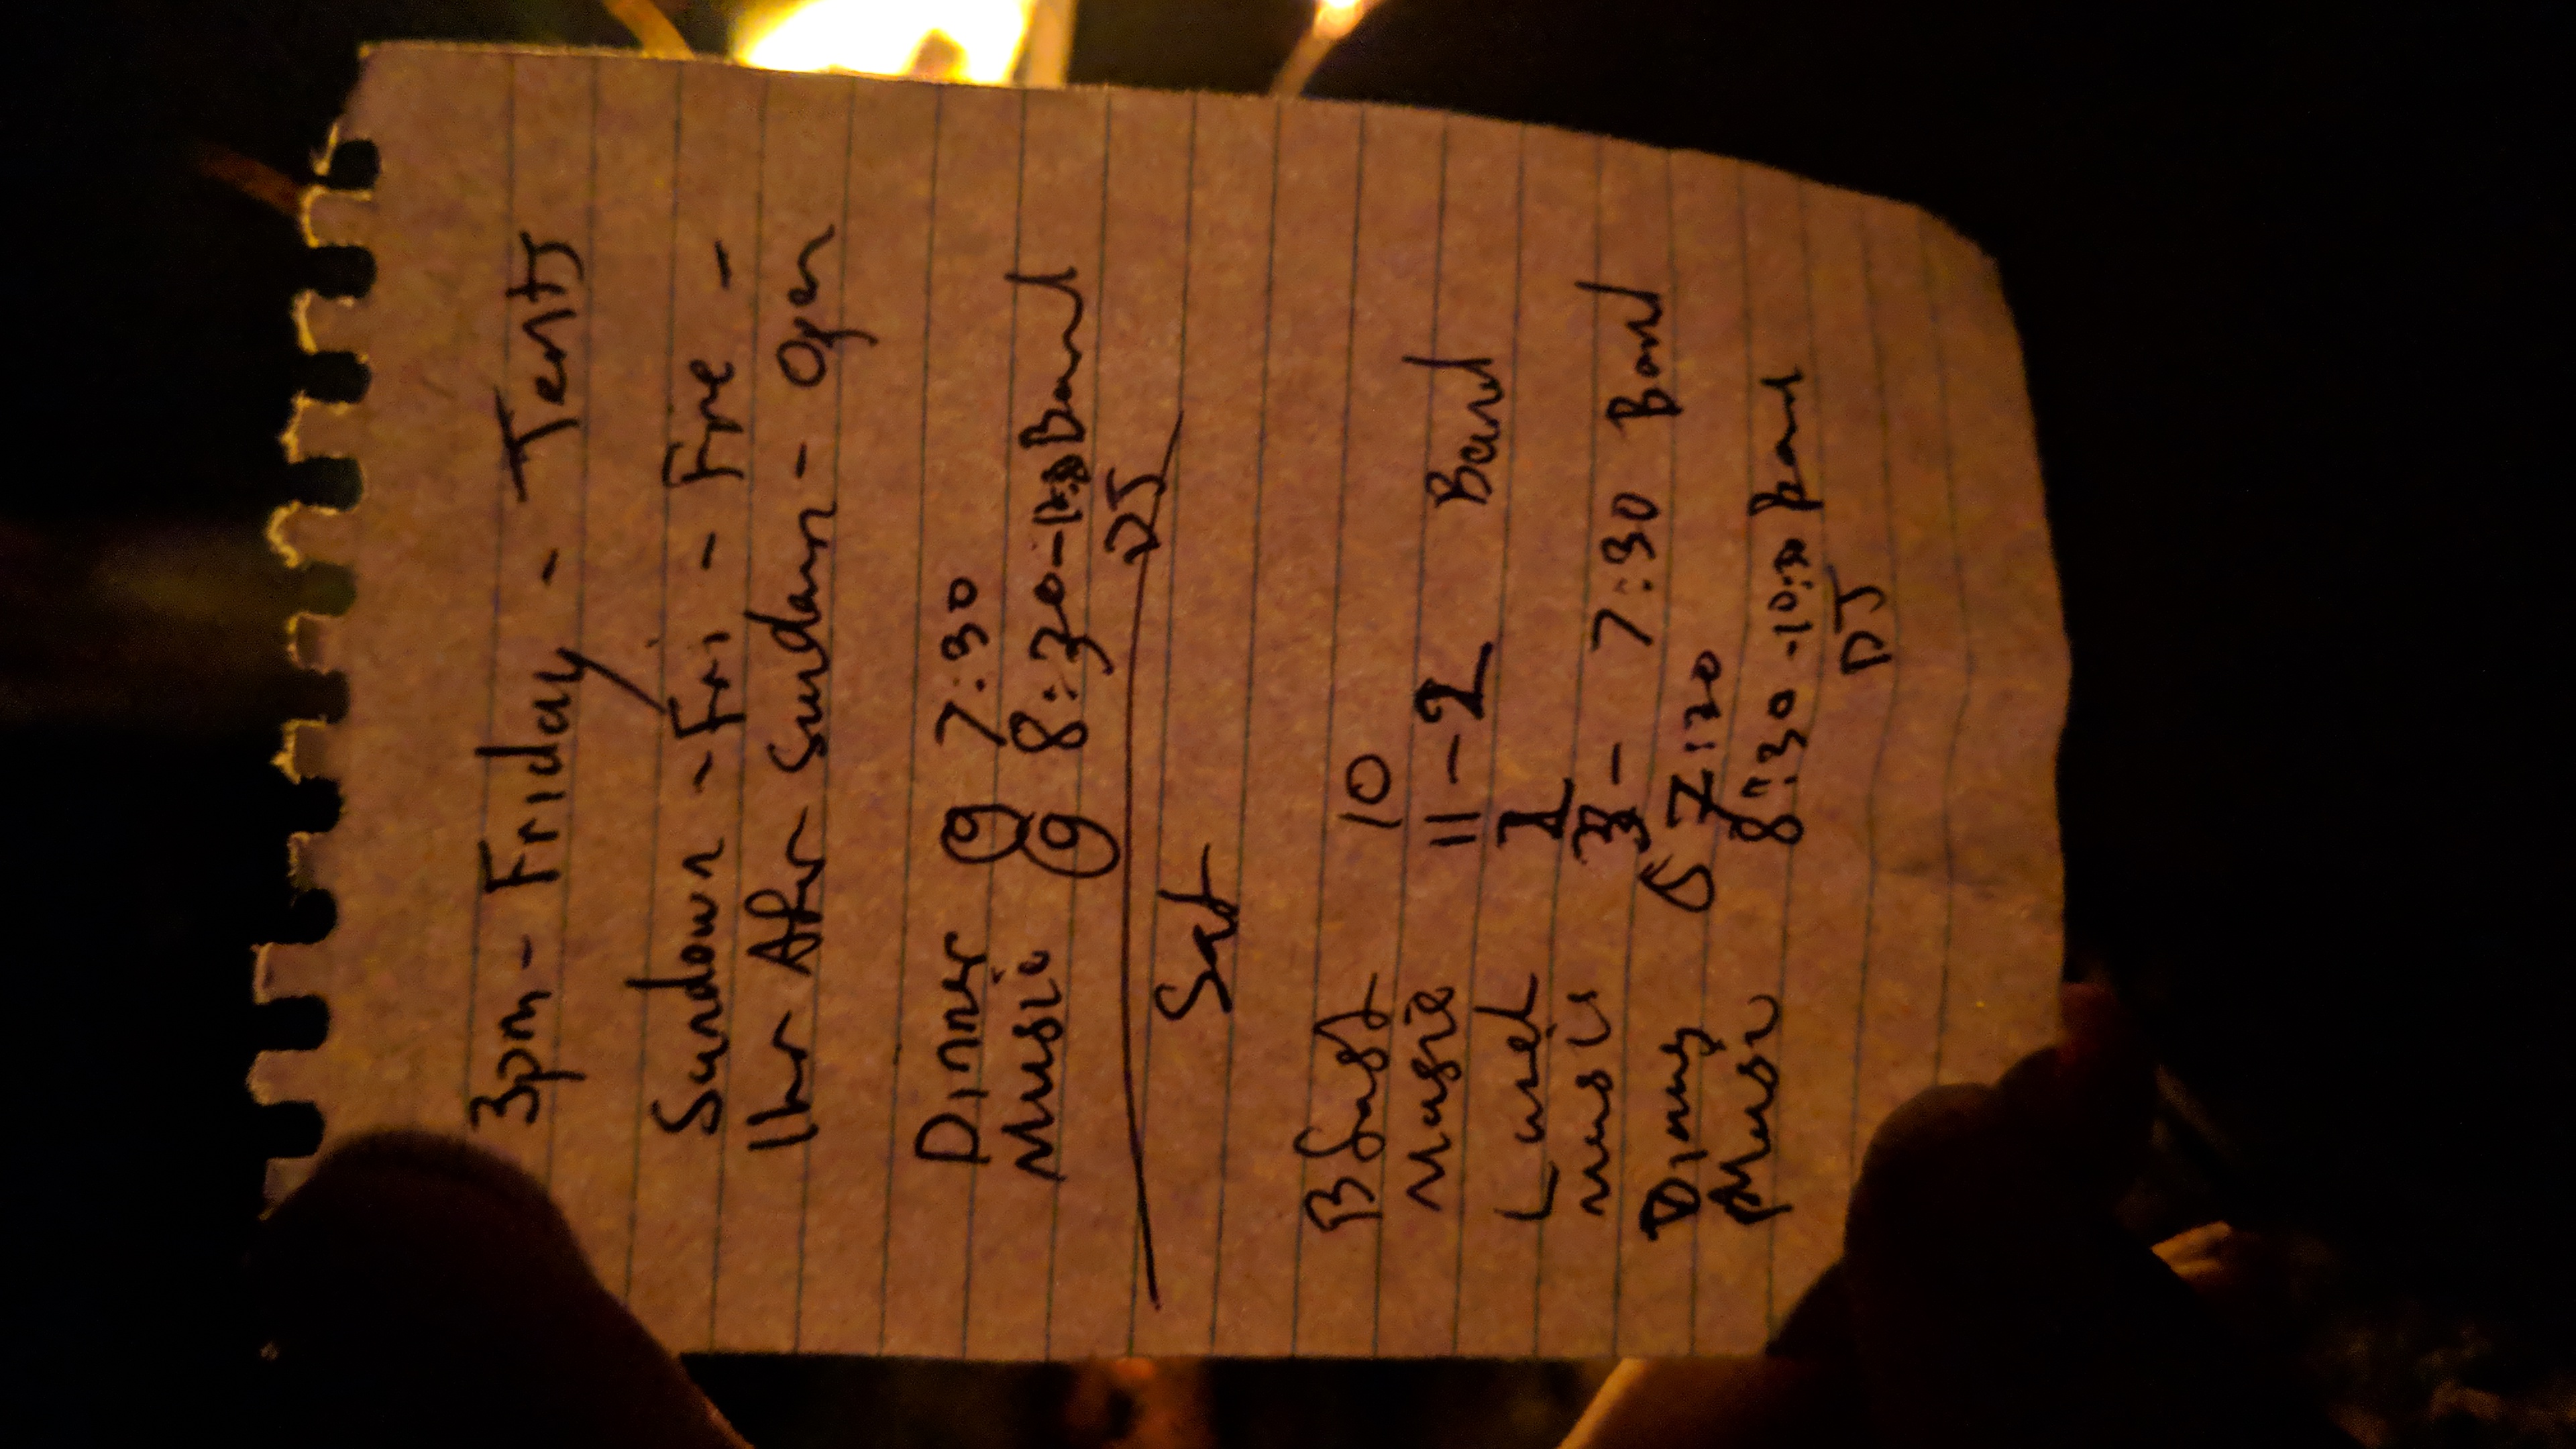 3pm - Friday - Tents
Sundown - Fri - Fire -
1hr After Sundown - Open
Dinner @ 7:30
Music @ 8:30-10:30 Band
DJ
Sat
Bfast 10
Music 11-2 Band
Lunch 1
music 3 - 7:30 Band
Dinner @ 7:30
Music 8:30-10:30 Band
DJ